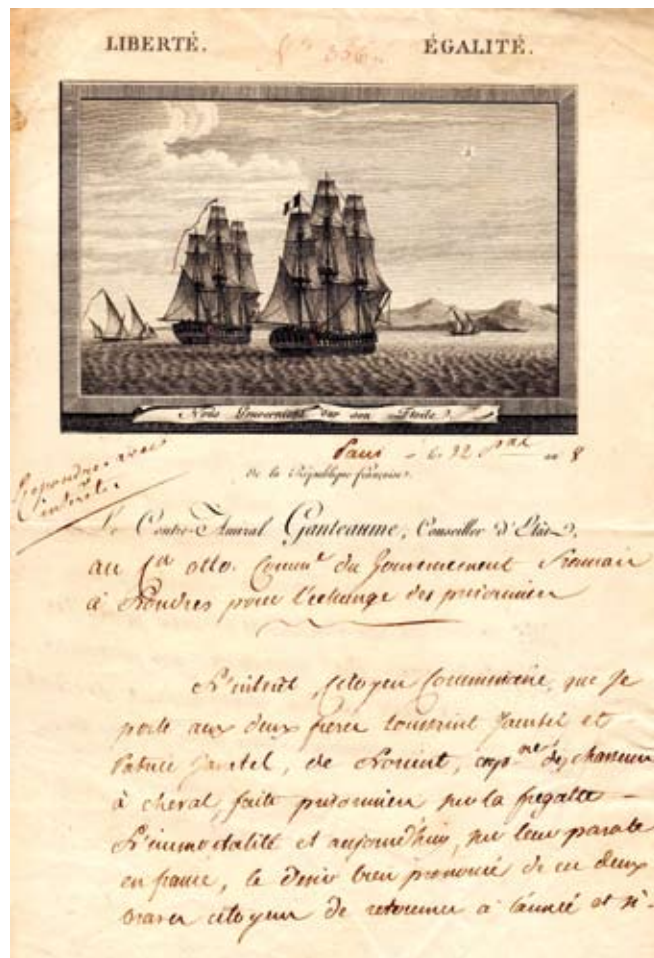 LIBERTÉ. ÉGALITÉ.
Nous Gouvernions sur son Etoile.
Paris le 12 an 8
de la République française.
Repondre avec
interet
Le Contre-Amiral Ganteaume, Conseiller d'Etat,
au Cen otto. Commre du Gouvernement francais
à Londres pour l'echange des prisonnier
L'interet, Citoyen Commissaire, que je
porte aux deux freres toussaint Jamtel et
Patrice Jamtel, de Lorient, des chasseurs
à cheval, faits prisonnier sur la fregatte
L'immortalité et aujourd'huy, sur leur parole
en france, le desir bien prononcé de ces deux
braves citoyen de retourner à l'armée et